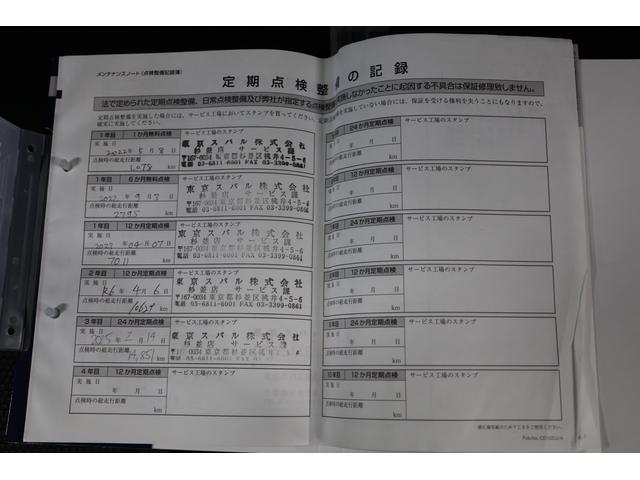 メンテナンスノート(点検整備記録簿)
定期点検整
備の記録
法で定められた定期点検整備、日常点検整備及び弊社が指定する点検整備
実施しなかったことに起因する不具合は保証修理致しません。
定期点検整備を実施した場合には、サービス工場においてスタンプを貰ってください。
実施していない場合には、保証を受ける権利を失うこともありますので、
確実に実施してください。
1年目 1か月無料点検 サービス工場のスタンプ
実施日 2022年5月8日
点検時の総走行距離
1,078 km
東京スバル株式会社
杉並店 サービス課
〒167-0034 東京都杉並区桃井4-5-6
電話 03-6811-6001 FAX 03-3399-0861
1年目 6か月無料点検 サービス工場のスタンプ
実施日 2022年9月3日
点検時の総走行距離
2795 km
東京スバル株式会社
杉並店 サービス課
〒167-0034 東京都杉並区桃井4-5-6
電話 03-6811-6001 FAX 03-3399-0861
1年目 12か月定期点検 サービス工場のスタンプ
実施日 2023年04月07日
点検時の総走行距離
7011 km
東京スバル株式会社
杉並店 サービス課
〒167-0034 東京都杉並区桃井4-5-6
電話 03-6811-6001 FAX 03-3399-0861
2年目 12か月定期点検 サービス工場のスタンプ
実施日 R6年4月6日
点検時の総走行距離
km
東京スバル株式会社
杉並店 サービス課
〒167-0034 東京都杉並区桃井4-5-6
電話 03-6811-6001 FAX 03-3399-0861
3年目 24か月定期点検 サービス工場のスタンプ
実施日 2025年2月14日
点検時の総走行距離
14,851 km
東京スバル株式会社
杉並店 サービス課
〒167-0034 東京都杉並区桃井4-5-6
電話 03-6811-6001 FAX 03-3399-0861
4年目 12か月定期点検 サービス工場のスタンプ
実施日 年 月 日
点検時の総走行距離
km
24か月定期点検 サービス工場のスタンプ
年 月 日
点検時の総走行距離
km
12か月定期点検 サービス工場のスタンプ
年 月 日
点検時の総走行距離
km
24か月定期点検 サービス工場のスタンプ
年 月 日
点検時の総走行距離
km
12か月定期点検 サービス工場のスタンプ
年 月 日
点検時の総走行距離
km
24か月定期点検 サービス工場のスタンプ
実施日 年 月 日
点検時の総走行距離
km
10年目 12か月定期点検 サービス工場のスタンプ
実施日 年 月 日
点検時の総走行距離
km